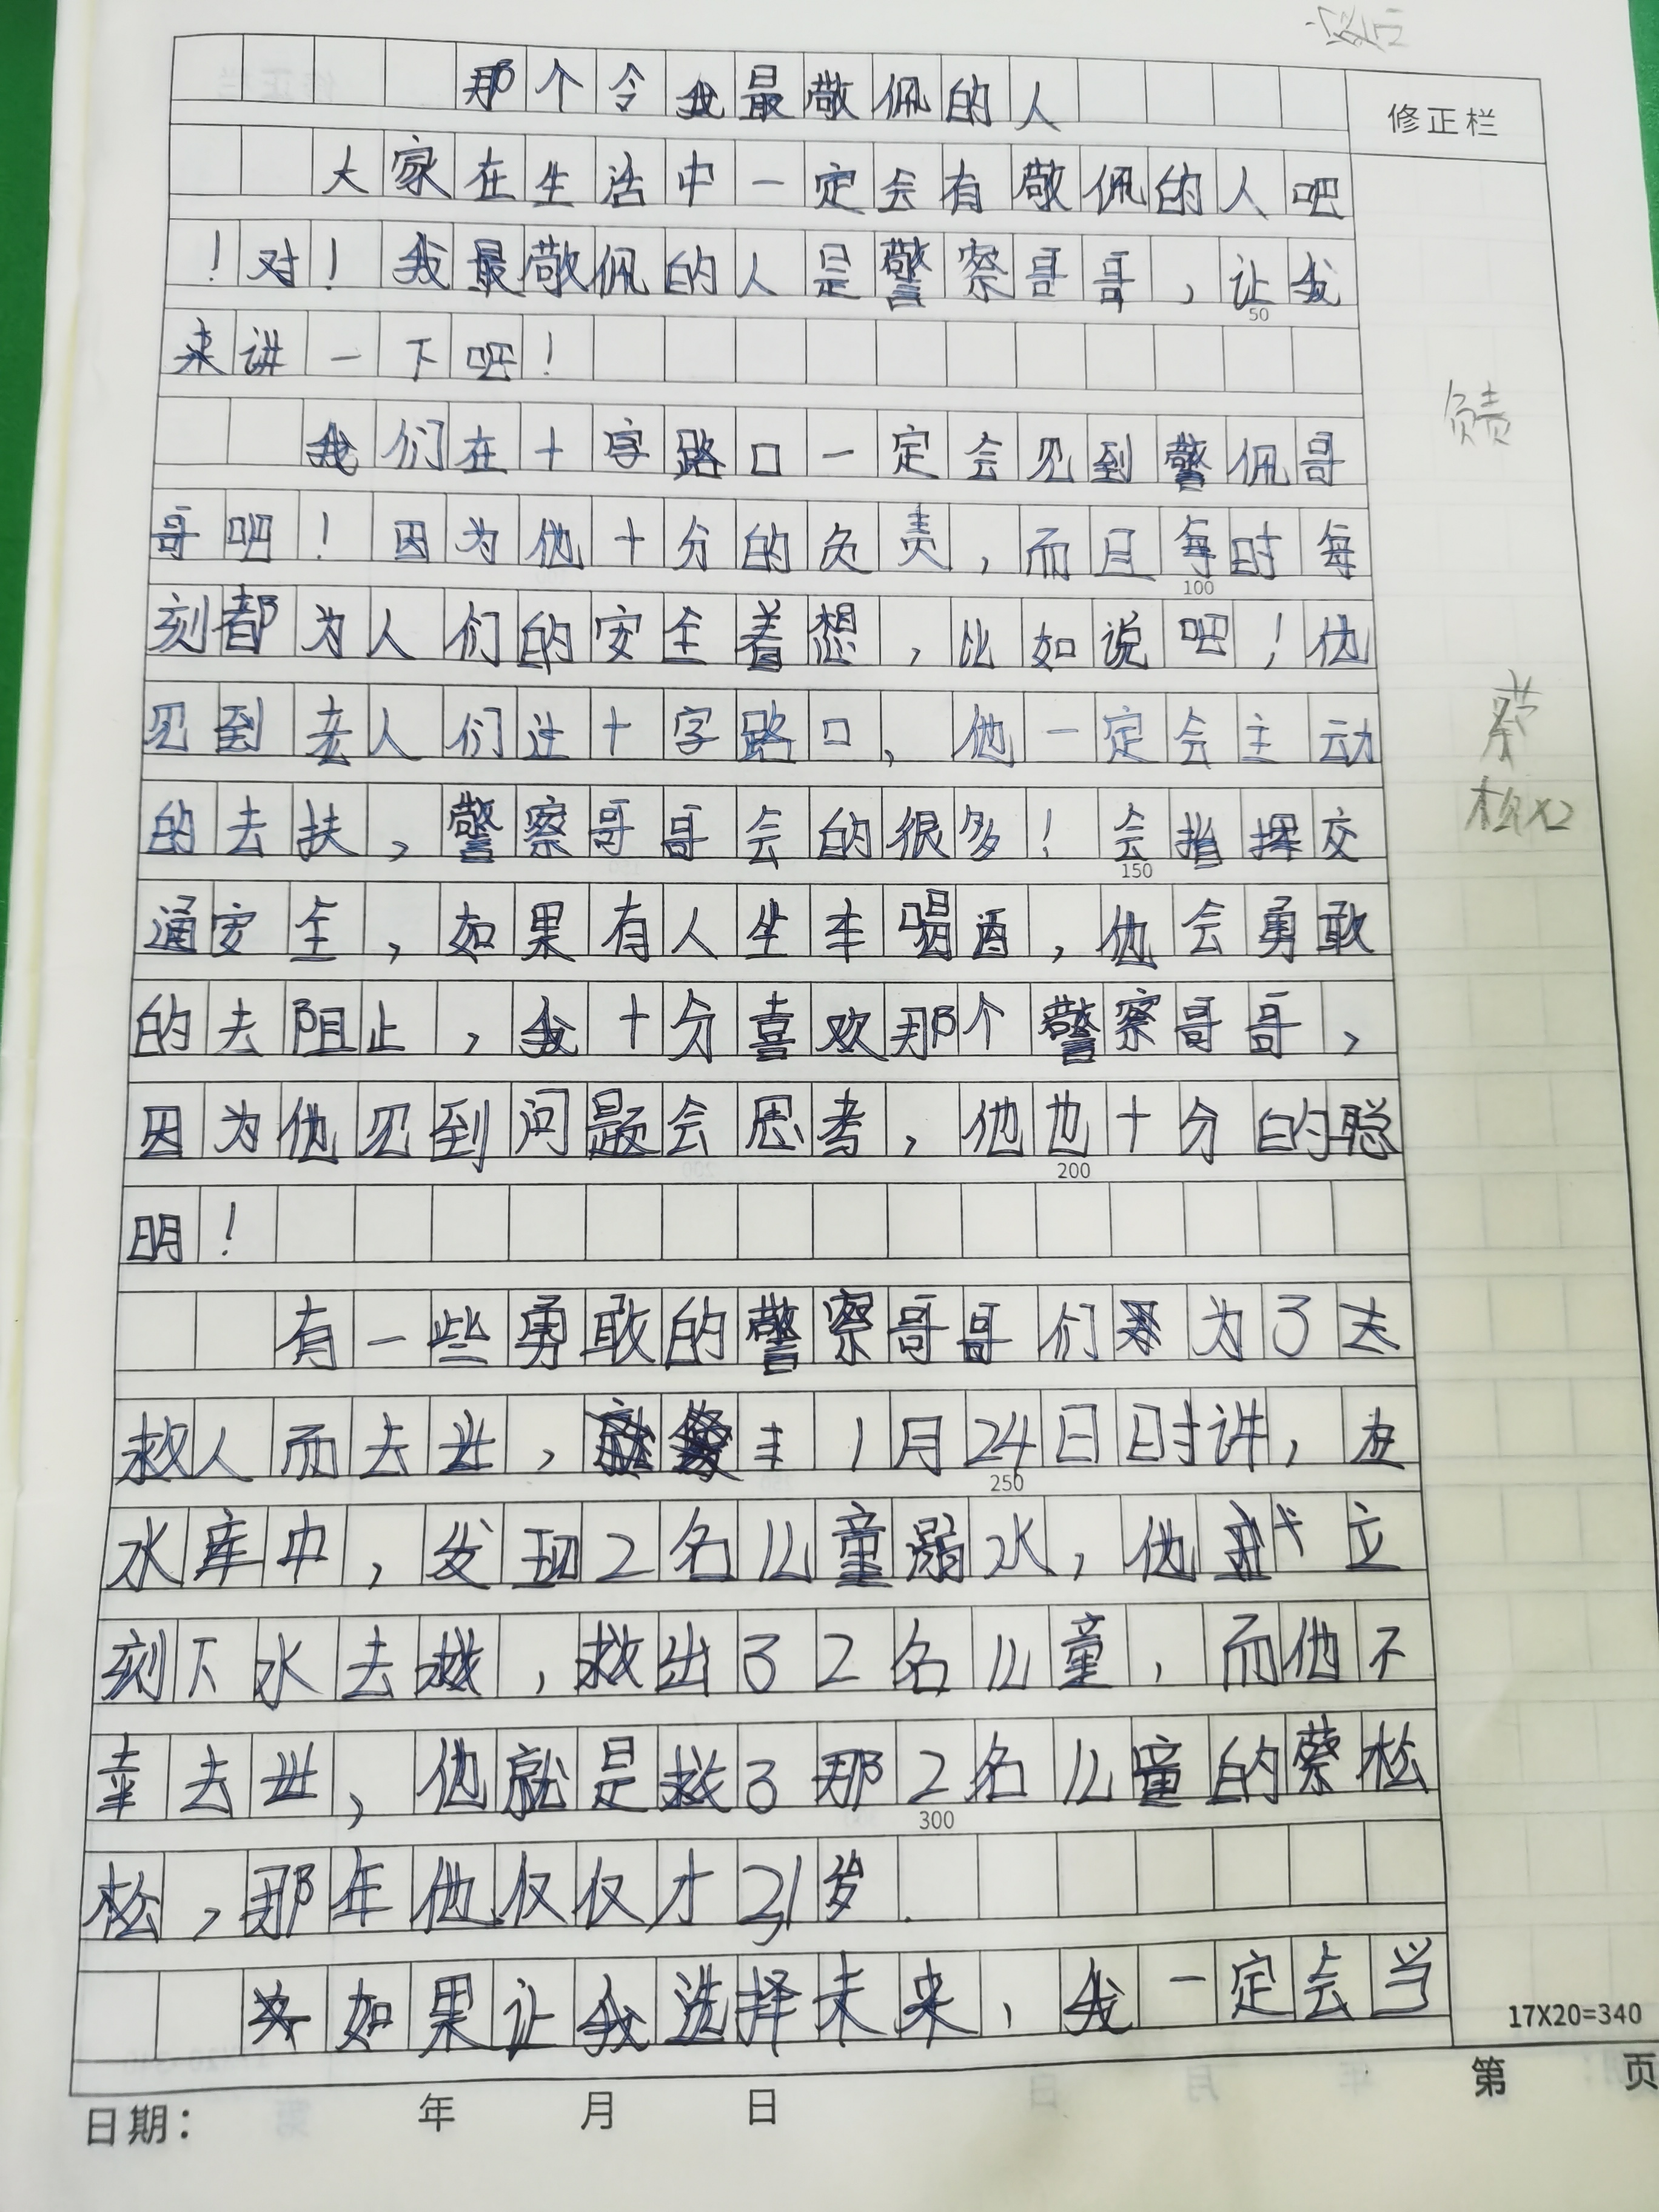 那个令我最敬佩的人
修正栏
大家在生活中一定会有敬佩的人吧
！对！我最敬佩的人是警察哥哥，让我
50
来讲一下吧！
我们在十字路口一定会见到警佩哥
负责
哥吧！因为他十分的负责，而且每时每
100
刻都为人们的安全着想，比如说吧！他
见到老人们过十字路口，他一定会主动
蔡
松x2
的去扶，警察哥哥会的很多！会指挥交
150
通安全，如果有人坐车喝酒，他会勇敢
的去阻止，我十分喜欢那个警察哥哥，
因为他见到问题会思考，他也十分的聪
200
明！
有一些勇敢的警察哥哥们为了去
救人而去世，1月24日时许，在
250
水库中，发现2名儿童溺水，他立
刻下水去救，救出了2名儿童，而他不
幸去世，他就是救了那2名儿童的蔡松
300
松，那年他仅仅才21岁.
如果让我选择未来，我一定会当
17X20=340
日期： 年 月 日
第 页